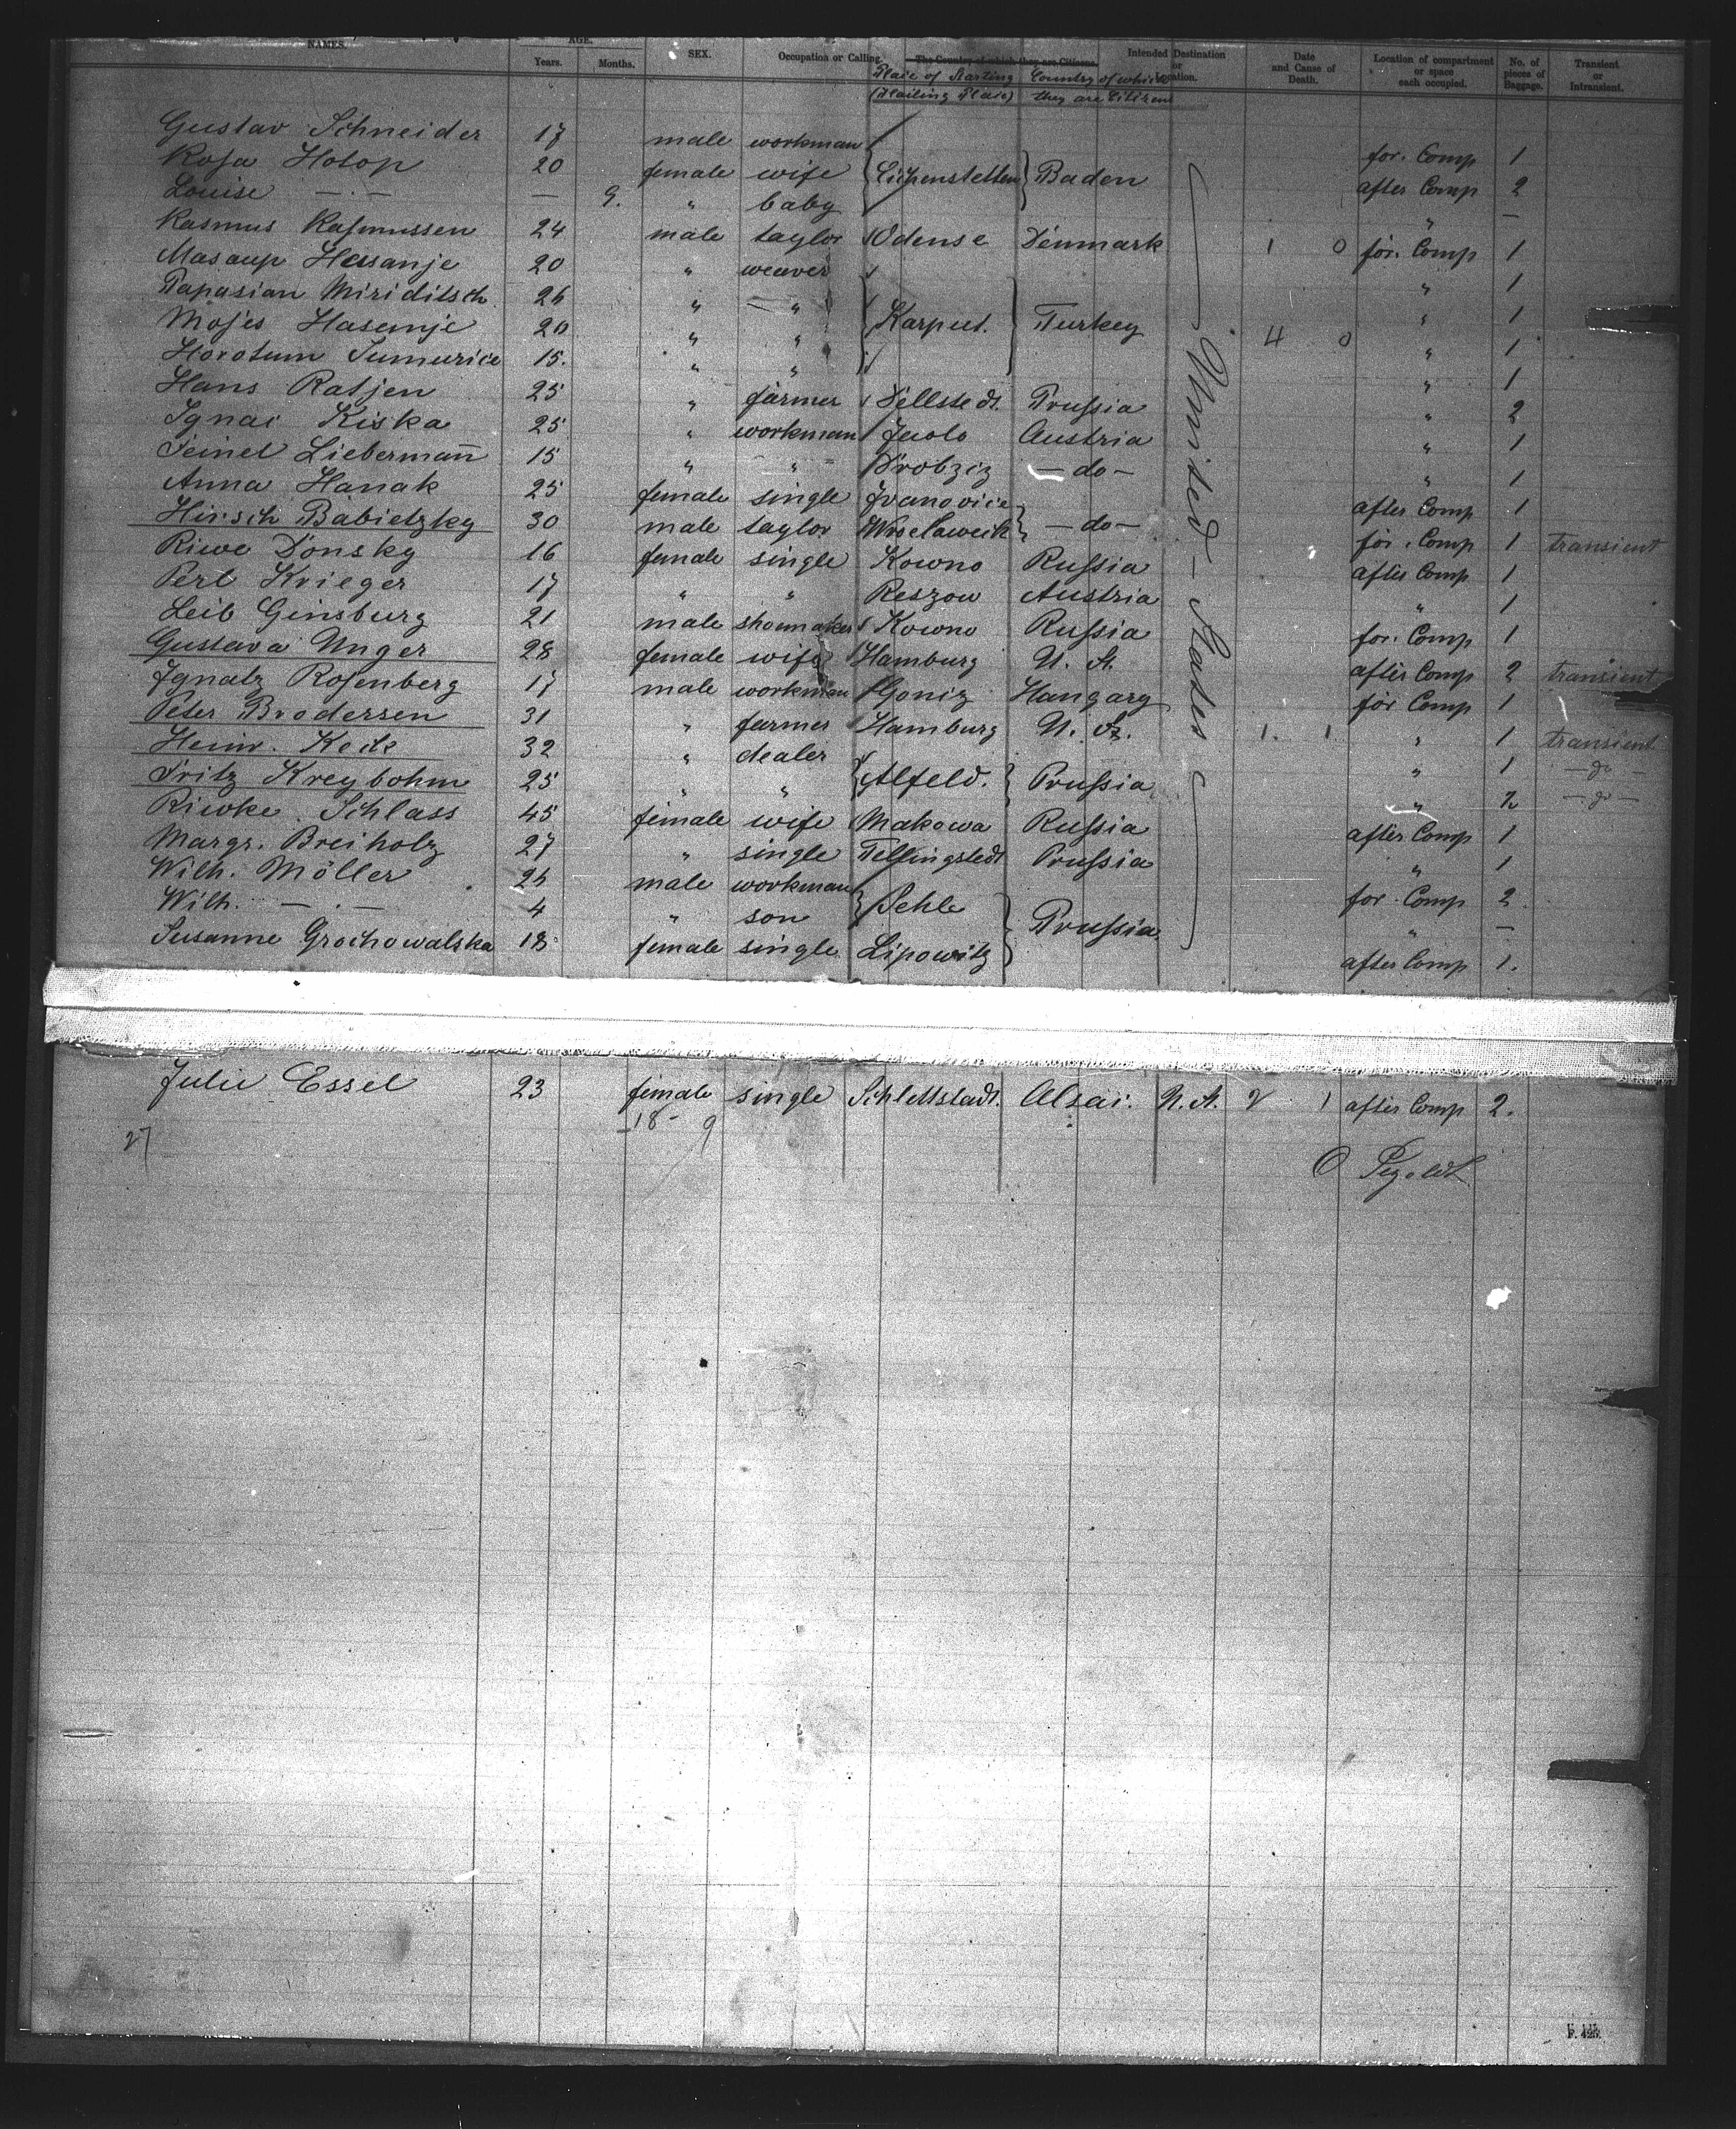 NAMES. AGE. SEX. Occupation or Calling. The Country of which they are Citizens. Intended Destination or Location. Date and Cause of Death. Location of compartment or space each occupied. No. of pieces of Baggage. Transient or Intransient.
Years. Months. Place of Starting (Hailing Place) Country of which they are Citizens
Gustav Schneider 17 male workman for. Comp 1
Rosa Hotop 20 female wife Eichenstetten Baden after Comp 2
Louise — . — — 9. " baby " —
Rasmus Rasmussen 24 male taylor Odense Denmark 1 0 for. Comp 1
Masaup Hessanje 20 " weaver " 1
Papasian Miriditsch 26 " " " 1
Moses Hasenje 20 " " Karput. Turkey 4 0 " 1
Horotum Tumuricie 15. " " " 1
Hans Ratjen 25 " farmer Dellstedt. Prussia " 2
Ignac Kiska 25 " workman Jaolo Austria " 1
Feinel Liebermann 15 " " Drobziz — do — " 1
Anna Hanak 25 female single Ivanovice after Comp 1
Hirsch Babietzky 30 male taylor Wroclaweik — do — for. Comp 1 transient
Riwe Donsky 16 female single Kowno Russia after Comp 1
Perl Krieger 17 " " Reszow Austria " 1
Leib Ginsburg 21 male shoemaker Kowno Russia for. Comp 1
Gustava Unger 28 female wife Hamburg U. St. after Comp 2 transient
Ignatz Rosenberg 17 male workman Goniz Hangary for Comp 1
Peter Brodersen 31 " farmer Hamburg U. St. 1. 1 " 1 transient
Heinr. Kock 32 " dealer " 1 — do —
Fritz Kreybohm 25 " " Alfeld. Prussia " 2 — do —
Riwke Schlass 45 female wife Makowa Russia after Comp 1
Margr. Breiholz 27 " single Tellingstedt Prussia " 1
Wilh. Möller 26 male workman for Comp 2
Wilh. — . — 4 " son Pehle Prussia. " —
Susanne Grochowalska 18 female single Lipowitz after Comp 1.
— United — States —
Julie Essel 23 female single Schlettstadt. Alsac. U. St. 2 1 after Comp 2.
18 - 9
27
O Pezoldt
F. 425.